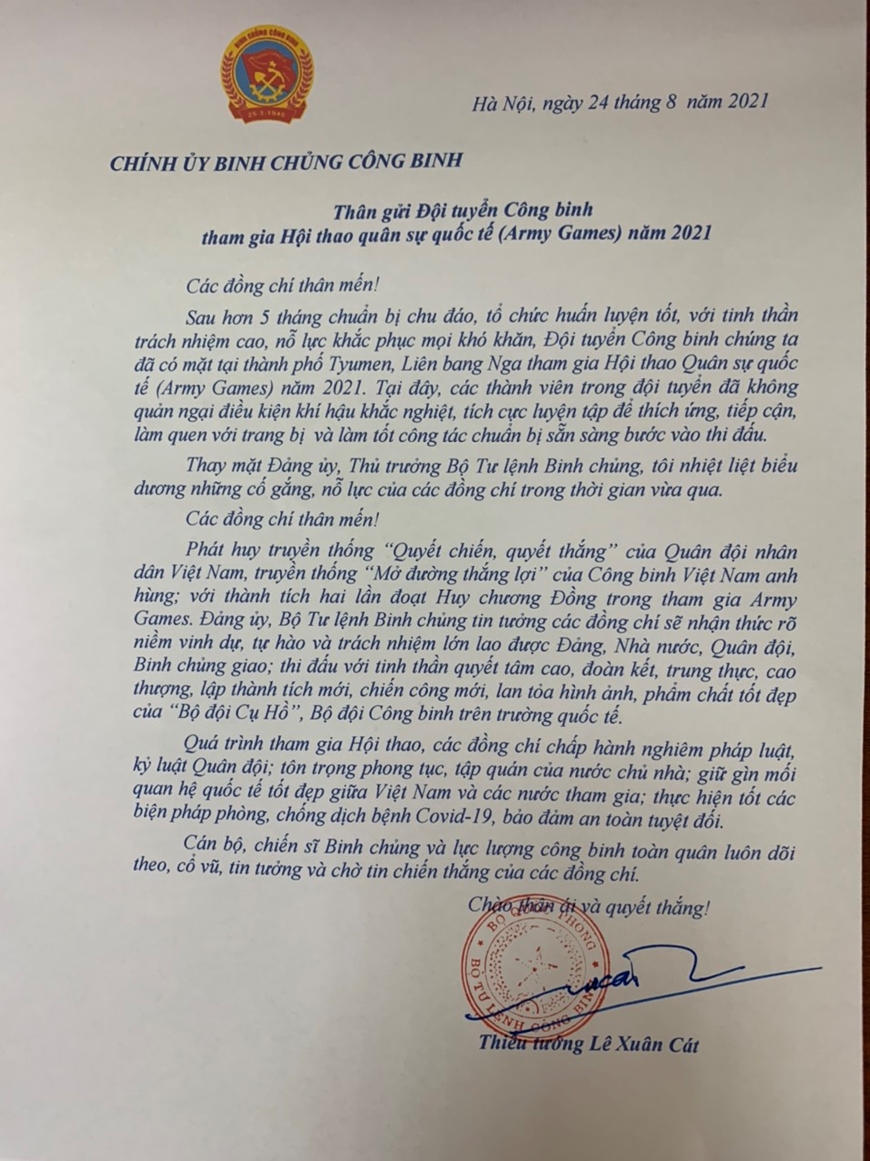 BINH CHỦNG CÔNG BINH
25.3.1946
Hà Nội, ngày 24 tháng 8 năm 2021
CHÍNH ỦY BINH CHỦNG CÔNG BINH
Thân gửi Đội tuyển Công binh
tham gia Hội thao quân sự quốc tế (Army Games) năm 2021
Các đồng chí thân mến!
Sau hơn 5 tháng chuẩn bị chu đáo, tổ chức huấn luyện tốt, với tinh thần
trách nhiệm cao, nỗ lực khắc phục mọi khó khăn, Đội tuyển Công binh chúng ta
đã có mặt tại thành phố Tyumen, Liên bang Nga tham gia Hội thao Quân sự quốc
tế (Army Games) năm 2021. Tại đây, các thành viên trong đội tuyển đã không
quản ngại điều kiện khí hậu khắc nghiệt, tích cực luyện tập để thích ứng, tiếp cận,
làm quen với trang bị và làm tốt công tác chuẩn bị sẵn sàng bước vào thi đấu.
Thay mặt Đảng ủy, Thủ trưởng Bộ Tư lệnh Binh chủng, tôi nhiệt liệt biểu
dương những cố gắng, nỗ lực của các đồng chí trong thời gian vừa qua.
Các đồng chí thân mến!
Phát huy truyền thống “Quyết chiến, quyết thắng” của Quân đội nhân
dân Việt Nam, truyền thống “Mở đường thắng lợi” của Công binh Việt Nam anh
hùng; với thành tích hai lần đoạt Huy chương Đồng trong tham gia Army
Games. Đảng ủy, Bộ Tư lệnh Binh chủng tin tưởng các đồng chí sẽ nhận thức rõ
niềm vinh dự, tự hào và trách nhiệm lớn lao được Đảng, Nhà nước, Quân đội,
Binh chủng giao; thi đấu với tinh thần quyết tâm cao, đoàn kết, trung thực, cao
thượng, lập thành tích mới, chiến công mới, lan tỏa hình ảnh, phẩm chất tốt đẹp
của “Bộ đội Cụ Hồ”, Bộ đội Công binh trên trường quốc tế.
Quá trình tham gia Hội thao, các đồng chí chấp hành nghiêm pháp luật,
kỷ luật Quân đội; tôn trọng phong tục, tập quán của nước chủ nhà; giữ gìn mối
quan hệ quốc tế tốt đẹp giữa Việt Nam và các nước tham gia; thực hiện tốt các
biện pháp phòng, chống dịch bệnh Covid-19, bảo đảm an toàn tuyệt đối.
Cán bộ, chiến sĩ Binh chủng và lực lượng công binh toàn quân luôn dõi
theo, cổ vũ, tin tưởng và chờ tin chiến thắng của các đồng chí.
Chào thân ái và quyết thắng!
BỘ QUỐC PHÒNG
BỘ TƯ LỆNH CÔNG BINH
Thiếu tướng Lê Xuân Cát